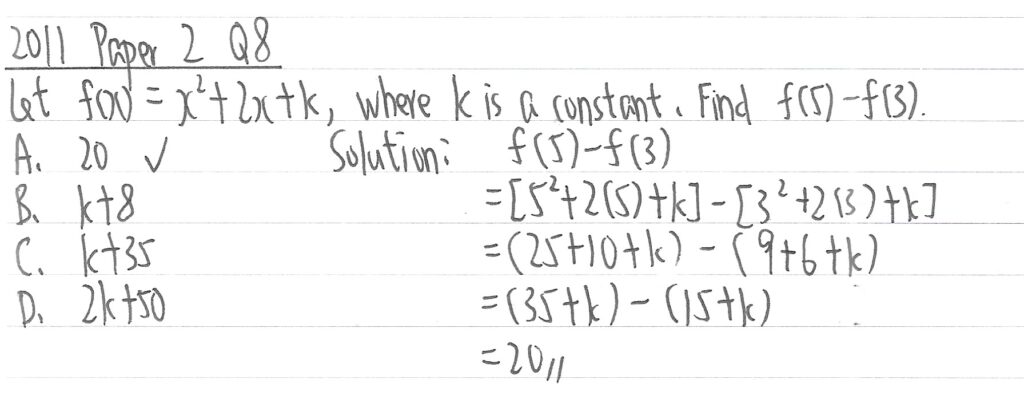 2011 Paper 2 Q8
Let f(x) = x²+2x+k, where k is a constant. Find f(5)-f(3).
A. 20 ✓ Solution: f(5)-f(3)
B. k+8 =[5²+2(5)+k]-[3²+2(3)+k]
C. k+35 =(25+10+k)-(9+6+k)
D. 2k+50 =(35+k)-(15+k)
=20//